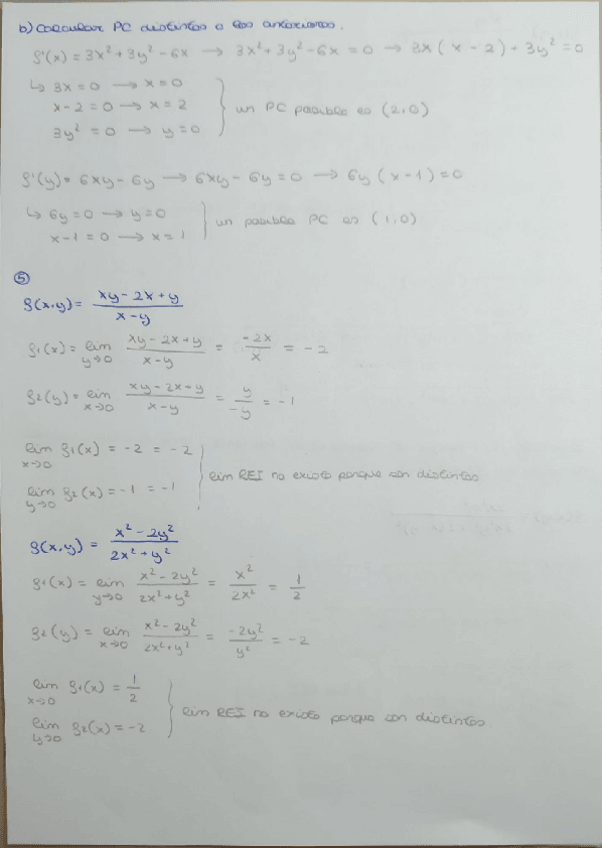 b) Calcular PC distintos a los anteriores.
f'(x) = 3x² + 3y² - 6x → 3x² + 3y² - 6x = 0 → 3x (x - 2) + 3y² = 0
↳ 3x = 0 → x = 0
x - 2 = 0 → x = 2 } un PC posible es (2,0)
3y² = 0 → y = 0
f'(y) = 6xy - 6y → 6xy - 6y = 0 → 6y (x - 1) = 0
↳ 6y = 0 → y = 0
x - 1 = 0 → x = 1 } un posible PC es (1,0)
⑤
f(x,y) = (xy - 2x + y)/(x - y)
f₁(x) = lim y→0 (xy - 2x + y)/(x - y) = -2x/x = -2
f₂(y) = lim x→0 (xy - 2x + y)/(x - y) = y/-y = -1
lim x→0 f₁(x) = -2 = -2
lim y→0 f₂(x) = -1 = -1 } lim REI no existe porque son distintos
f(x,y) = (x² - 2y²)/(2x² + y²)
f₁(x) = lim y→0 (x² - 2y²)/(2x² + y²) = x²/2x² = 1/2
f₂(y) = lim x→0 (x² - 2y²)/(2x² + y²) = -2y²/y² = -2
lim x→0 f₁(x) = 1/2
lim y→0 f₂(x) = -2 } lim REI no existe porque son distintos.